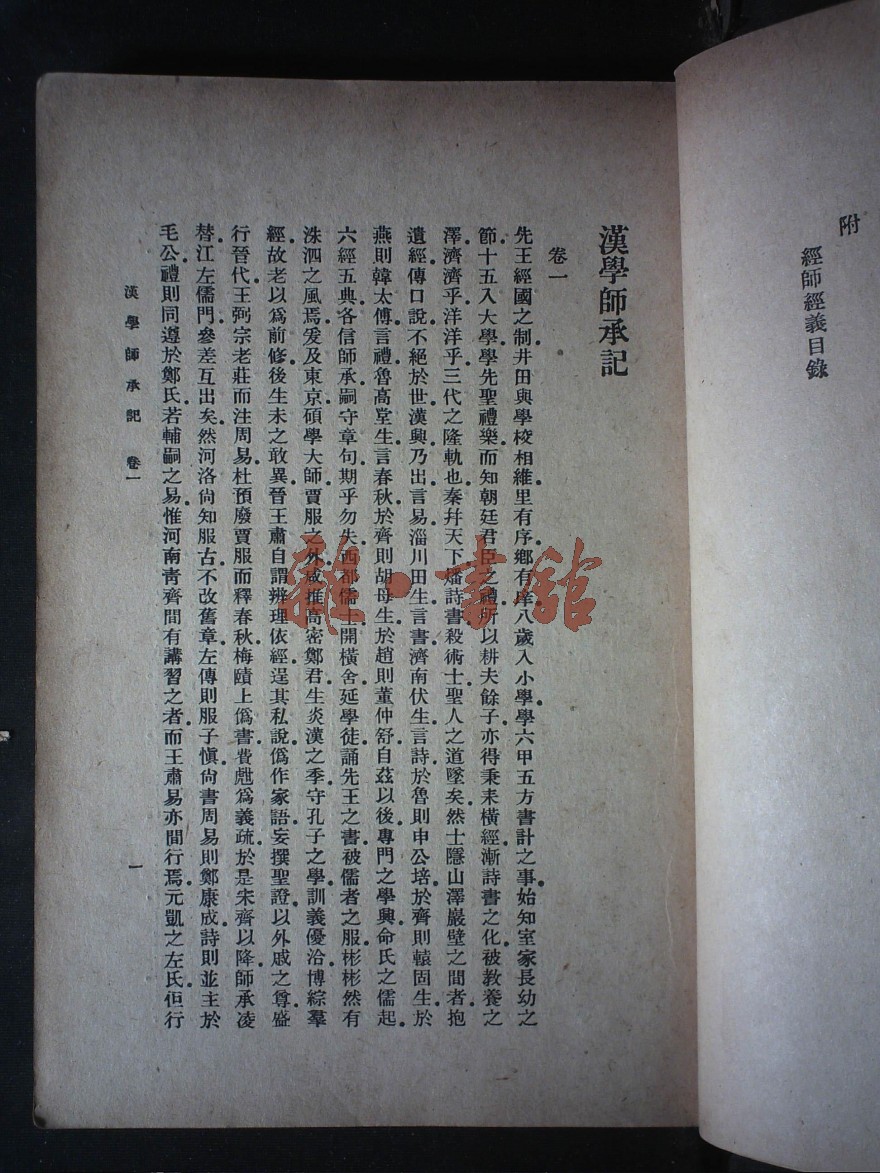 附
經師經義目錄
漢學師承記
卷一
先王經國之制井田與學校相維里有序鄉有庠八歲入小學學六甲五方書計之事始知室家長幼之
節十五入大學學先聖禮樂而知朝廷君臣之禮所以耕夫餘子亦得秉耒橫經漸詩書之化被教養之
澤濟濟乎洋洋乎三代之隆軌也秦幷天下燔詩書殺術士聖人之道墜矣然士隱山澤巖壁之間者抱
遺經傳口說不絕於世漢興乃出言易淄川田生言書濟南伏生言詩於魯則申公培於齊則轅固生於
燕則韓太傅言禮魯高堂生言春秋於齊則胡母生於趙則董仲舒自茲以後專門之學興命氏之儒起
六經五典各信師承嗣守章句期乎勿失西都儒士開橫舍延學徒誦先王之書被儒者之服彬彬然有
洙泗之風焉爰及東京碩學大師賈服之外咸推高密鄭君生炎漢之季守孔子之學訓義優洽博綜羣
經故老以爲前修後生未之敢異晉王肅自謂辨理依經逞其私說僞作家語妄撰聖證以外戚之尊盛
行晉代王弼宗老莊而注周易杜預廢賈服而釋春秋梅賾上僞書費甝爲義疏於是宋齊以降師承凌
替江左儒門參差互出矣然河洛尙知服古不改舊章左傳則服子愼尙書周易則鄭康成詩則並主於
毛公禮則同遵於鄭氏若輔嗣之易惟河南靑齊間有講習之者而王肅易亦間行焉元凱之左氏但行
漢學師承記 卷一
一
雜·書館